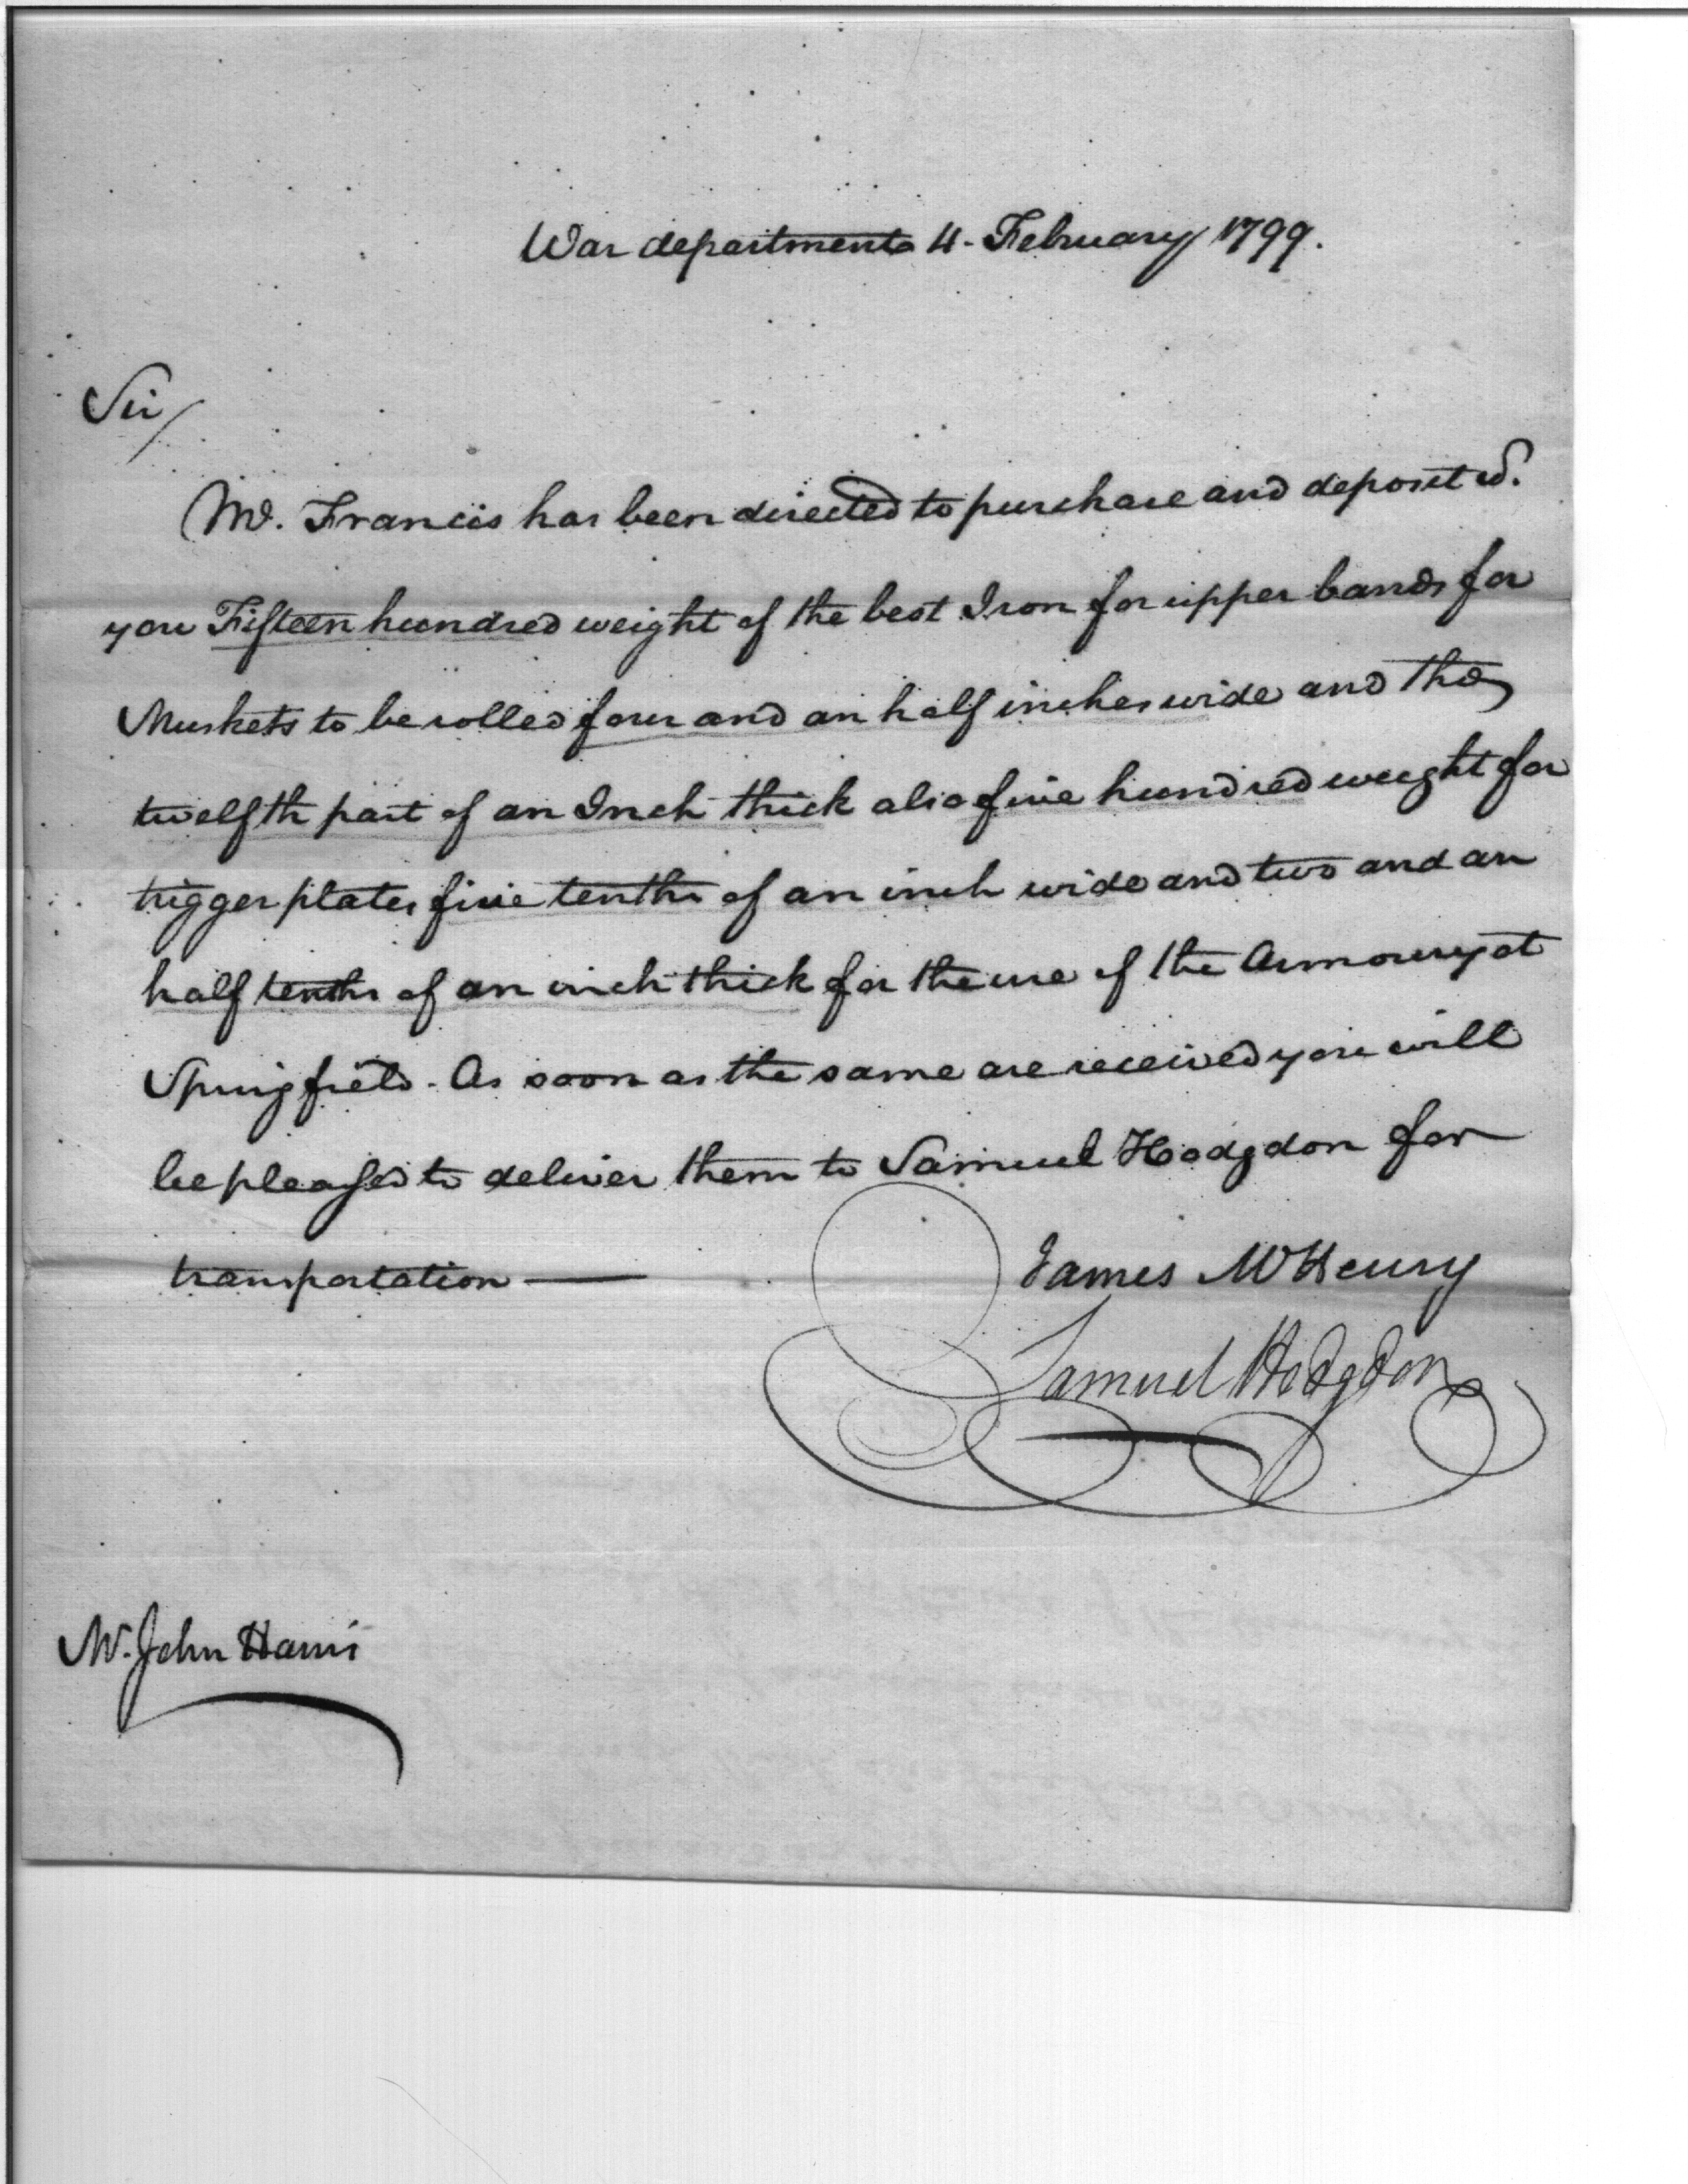 War department 4. February 1799.
Sir/
Mr. Francis has been directed to purchase and deposit wd.
you Fifteen hundred weight of the best Iron for upper bands for
Muskets to be rolled four and an half inches wide and the
twelfth part of an Inch thick also five hundred weight for
trigger plates five tenths of an inch wide and two and an
half tenths of an inch thick for the use of the Armoury at
Springfield. As soon as the same are received you will
be pleased to deliver them to Samuel Hodgdon for
transportation —
James McHenry
Samuel Hodgdon
Mr. John Harris